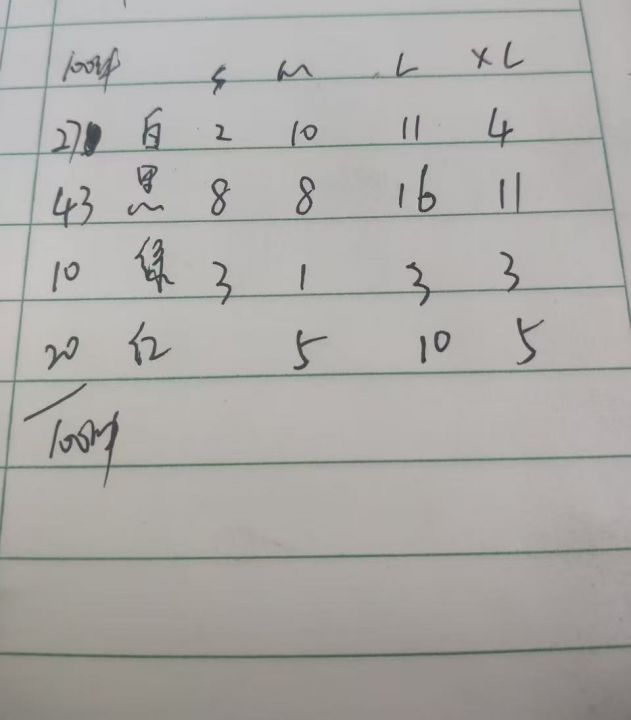 100件 S M L XL
27 白 2 10 11 4
43 黑 8 8 16 11
10 绿 3 1 3 3
20 红 5 10 5
100件